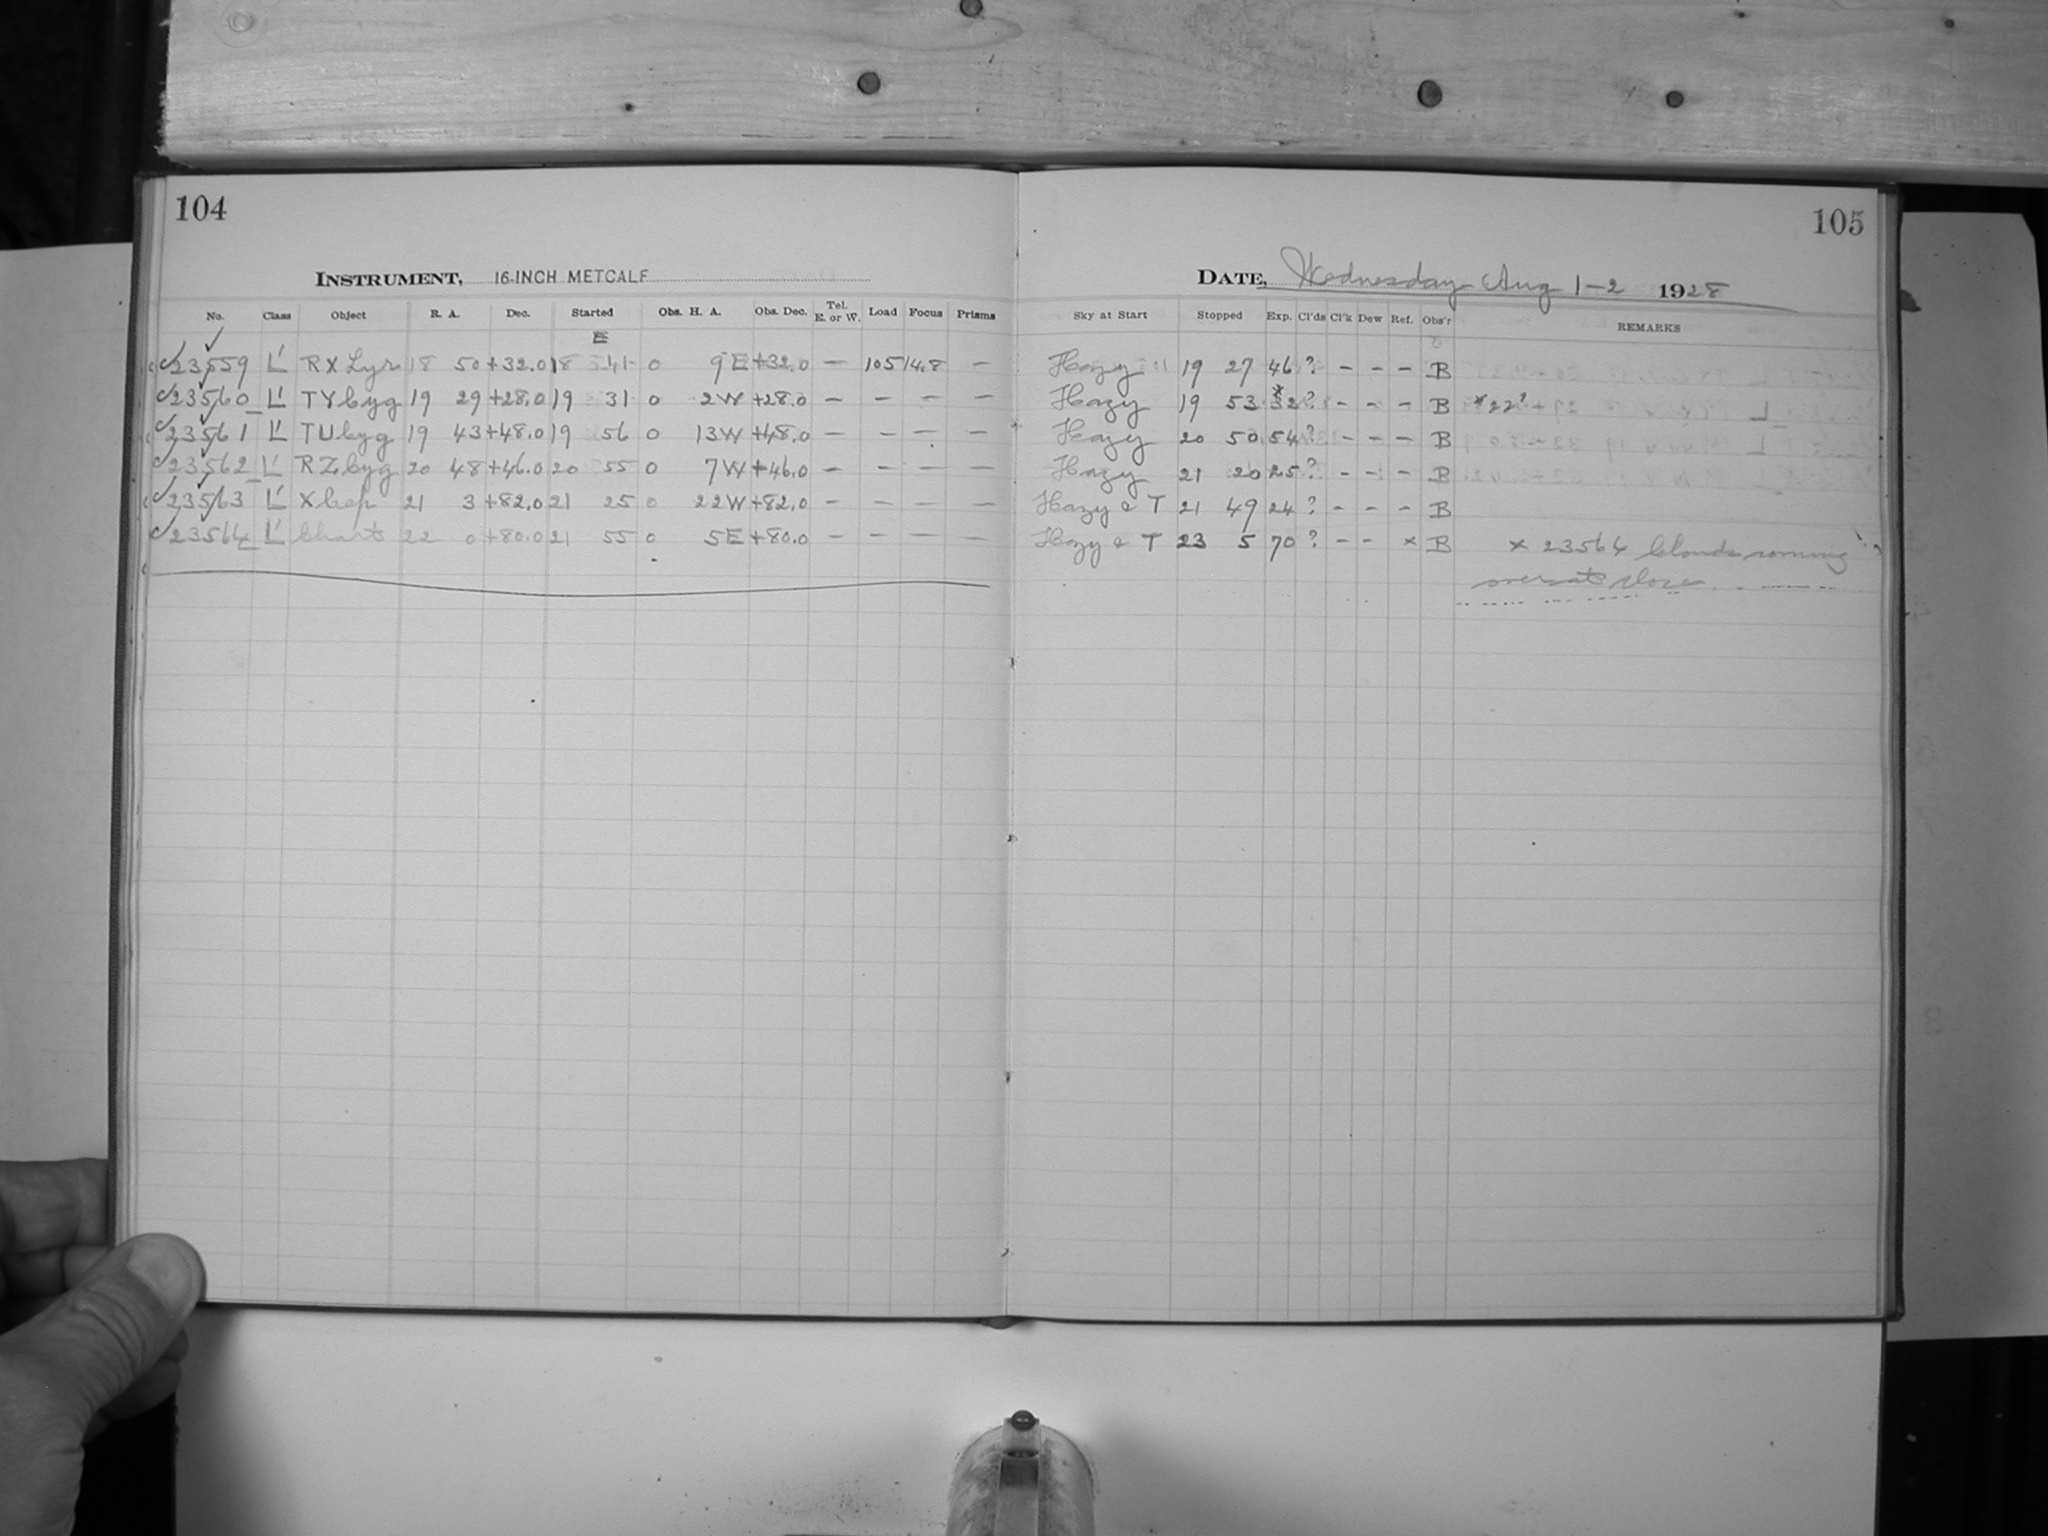 104
INSTRUMENT, 16-INCH METCALF
No. Class Object R. A. Dec. Started Obs. H. A. Obs. Dec. Tel. E. or W. Load Focus Prisms
E
✓ 23559 L' RX Lyr 18 50 +32.0 18 41 0 9 E +32.0 — 105 148 —
✓ 23560 L' TY Cyg 19 29 +28.0 19 31 0 2 W +28.0 — — — —
✓ 23561 L' TU Cyg 19 43 +48.0 19 56 0 13 W +48.0 — — — —
✓ 23562 L' RZ Cyg 20 48 +46.0 20 55 0 7 W +46.0 — — — —
✓ 23563 L' X Cep 21 3 +82.0 21 25 0 22 W +82.0 — — — —
✓ 23564 L' Chart 22 0 +80.0 21 55 0 5 E +80.0 — — — —
105
DATE, Wednesday Aug 1-2 1928
Sky at Start Stopped Exp. Cl'ds Cl'k Dew Ref. Obs'r REMARKS
Hazy 19 27 46 ? - - - B
Hazy 19 53 *32 ? - - - B *22?
Hazy 20 50 54 ? - - - B
Hazy 21 20 25 ? - - - B
Hazy & T 21 49 24 ? - - - B
Hazy & T 23 5 70 ? - - × B × 23564 Clouds coming
over at close